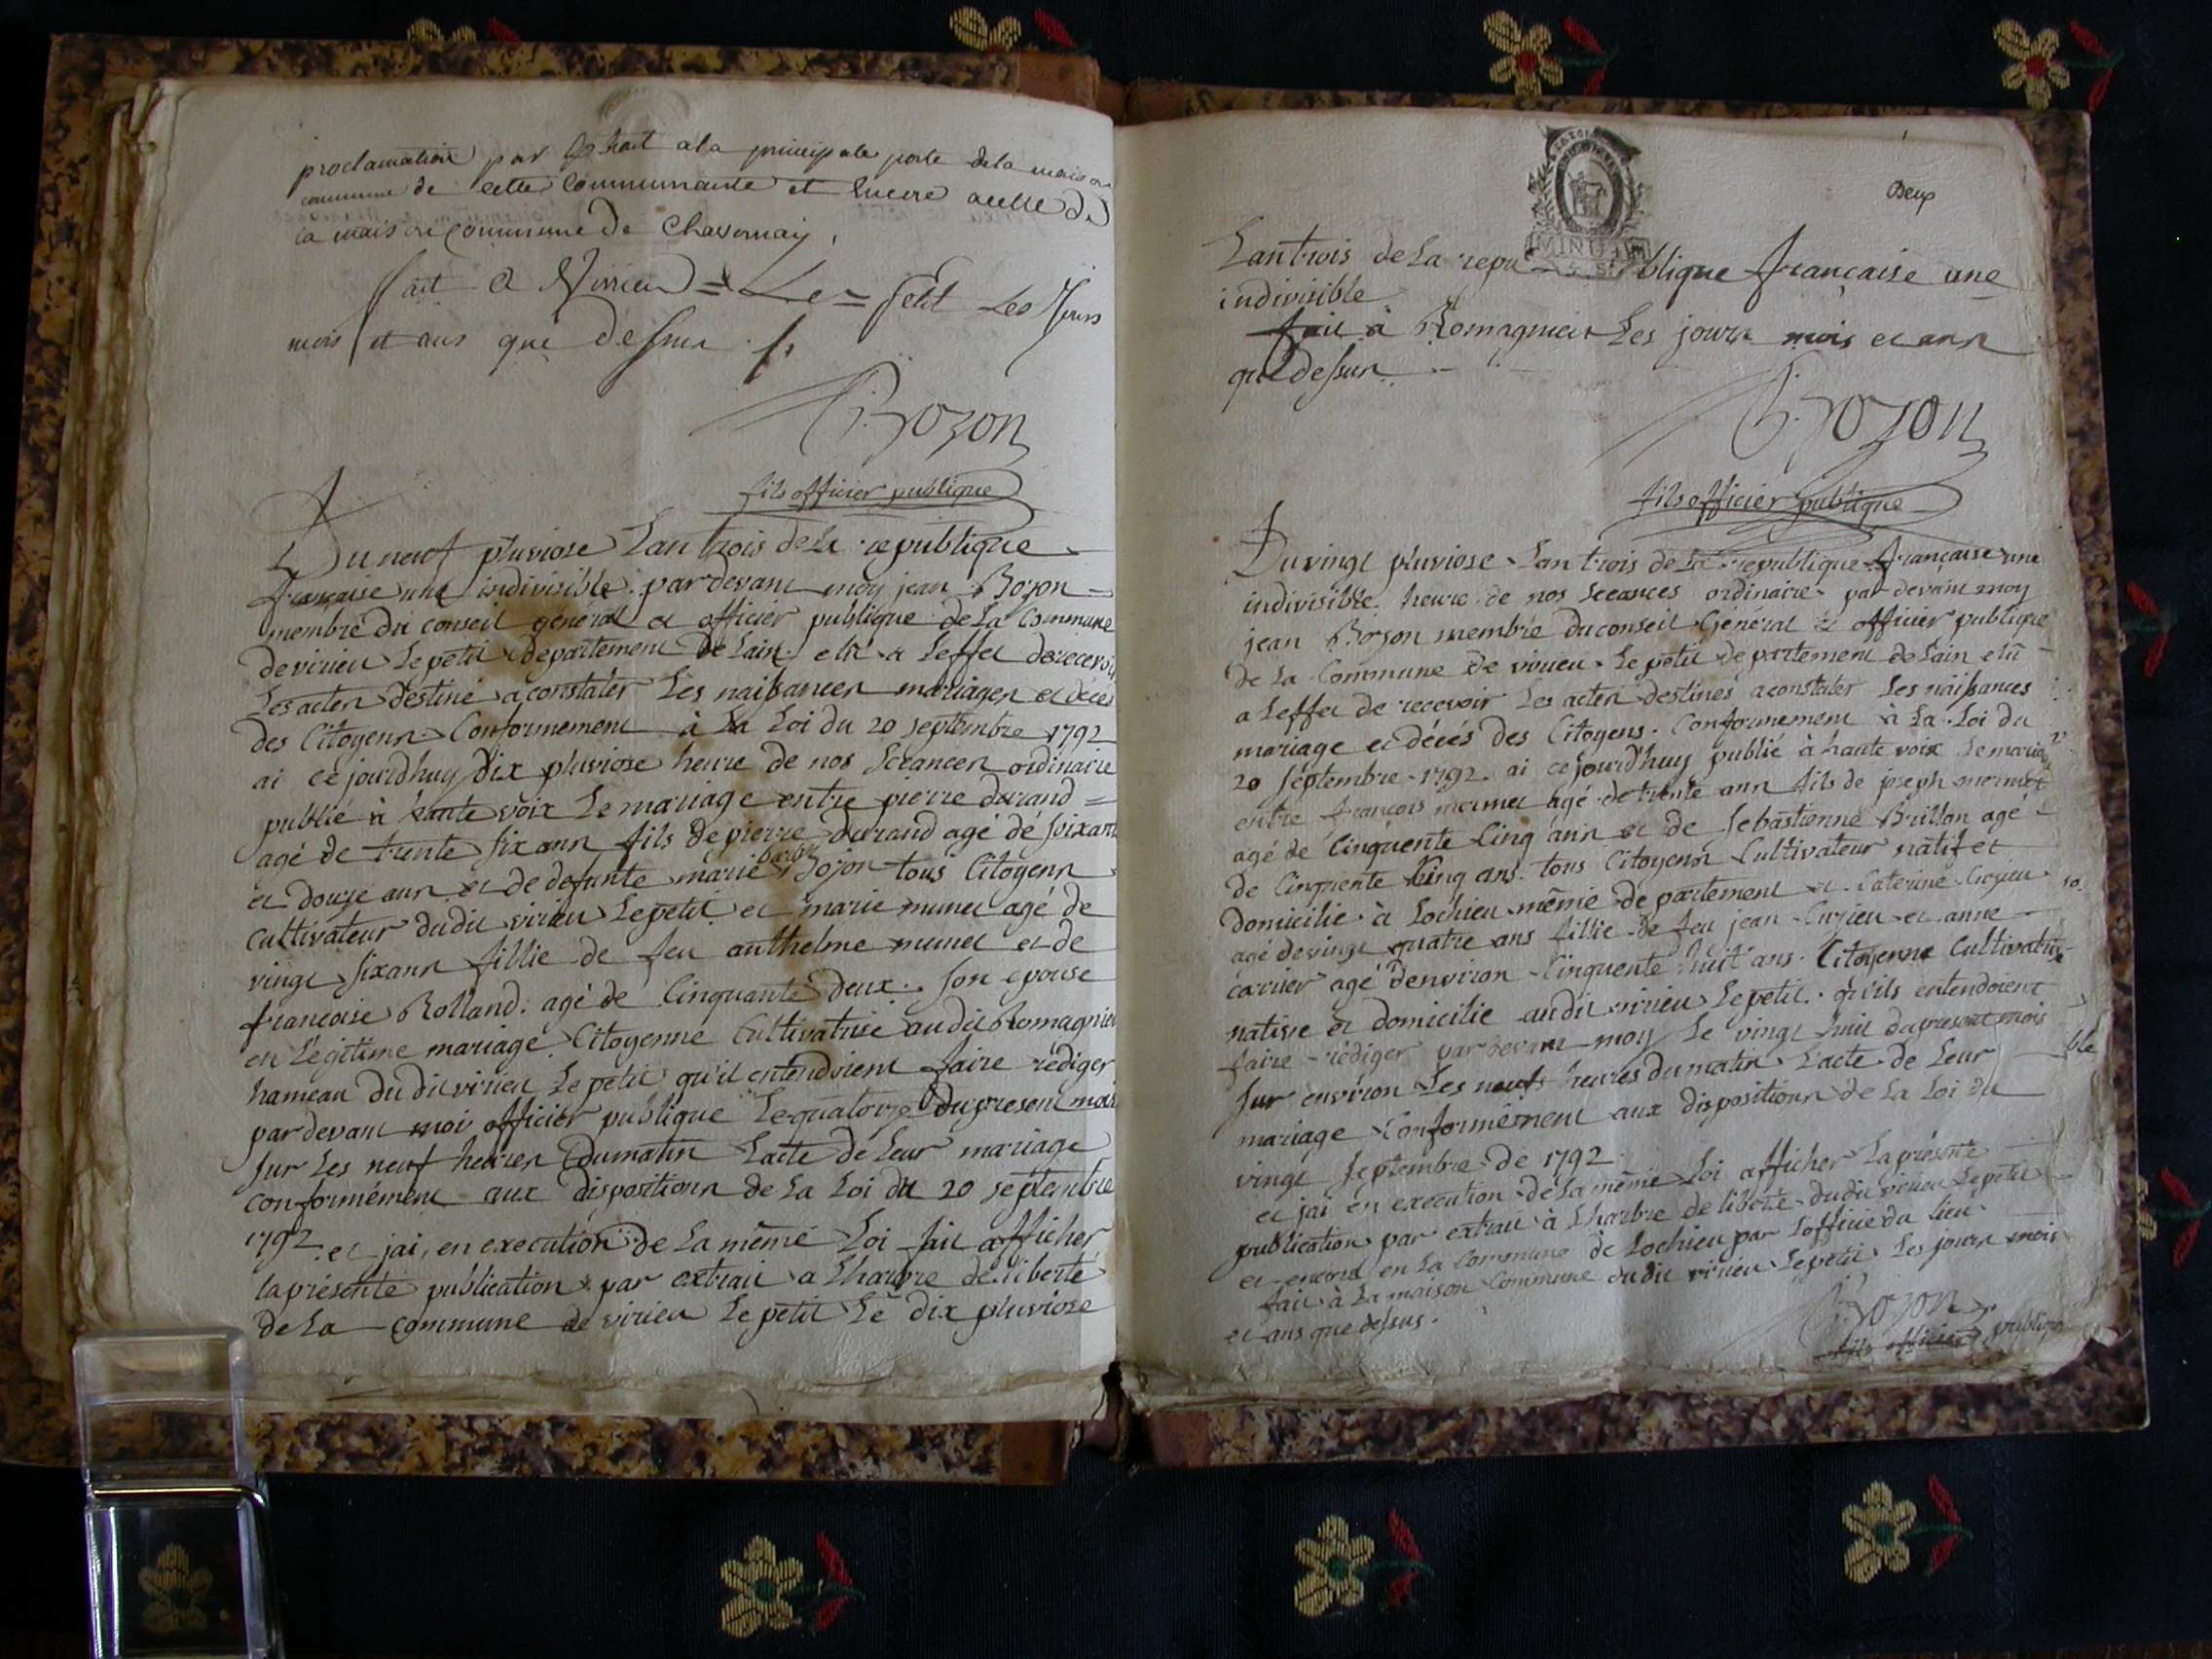 proclamation par Extrait a la principale porte de la maison
commune de cette Communauté et Encore a celle de
la maison Commune de Chavornay,
fait a Virieu = Le = Petit Les Jours
mois et ans que dessus
Bozon
fils officier publique
Du neuf pluviose Lan trois de La republique
francaise une indivisible par devant moy jean Bozon =
membre du conseil général et officier publique de La Commune
de virieu Le petit departement de Lain elû a Leffet de recevoir
Les acten destiné a constater Les naissancen mariagen et décès
des Citoyenn Conformement à La Loi du 20 septembre 1792
ai ce jourdhuy dix pluviose heure de nos Sceancen ordinaire
publié à haute voix Le mariage entre pierre durand =
agé de trente six ann fils de pierre durand agé de soixante
et douze ann et de defunte marie barbe Bojon tous Citoyenn
cultivateur dudit virieu Le petit et marie munet agé de
vingt six ann fillie de feu anthelme munet et de
francoise Rolland agé de Cinquante deux son epouse
en Légitime mariage Citoyenne Cultivatrice audit Romagnieu
hameau du dit virieu Le petit qu'il entendoient faire rédiger
par devant moi officier publique Le quatorze du present mois
sur Les neuf heuren du matin Lacte de Leur mariage
conformément aux dispositionn de La Loi du 20 septembre
1792 et jai, en execution de La même Loi fait afficher
la présente publication par extrait a Lharbre de liberté
de La commune de virieu Le petit Le dix pluviose
Deux
MINUTE
Lan trois de La republique francaise une
indivisible
fait à Romagnieu Les journ mois et ann
que dessus
Bozon
fils officier publique
Du vingt pluviose Lan trois de La republique francaise une
indivisible heure de nos sceances ordinaire par devant moy
jean Bozon membre du conseil Général et officier publique
de La Commune de virieu Le petit departement de Lain elû
a Leffet de recevoir Les acten destinés a constater Les naissances
mariage et décés des Citoyens Conformement à La Loi du
20 septembre 1792 ai ce jourdhuy publié à haute voix Le mariage
entre françois mermet agé de trente ann fils de joseph mermet
agé de Cinquente Cinq ann et de Sebastienne Brillon agé
de Cinquente Cinq ans tous Citoyenn Cultivateur natif et
domicilie à Lochieu même departement et Caterine Curjieu
agé de vingt quatre ans fillie de feu jean Curjieu et anne
carrier agé denviron Cinquente huit ans Citoyenne Cultivatrice
native et domicilie audit virieu Le petit qu'ils entendoient
faire rédiger par devant moy Le vingt huit du present mois
sur environ Les neufs heures du matin Lacte de Leur
mariage Conformément aux dispositionn de La Loi du
vingt septembre de 1792
et jai en execution de La même Loi afficher La présente
publication par extrait à Lharbre de liberté dudit virieu Le petit
et encore en La Commune de Lochieu par Lofficie du lieu
fait à La maison Commune dudit virieu Le petit Les journ mois
et ans que dessus.
Bozon
fils officier publique